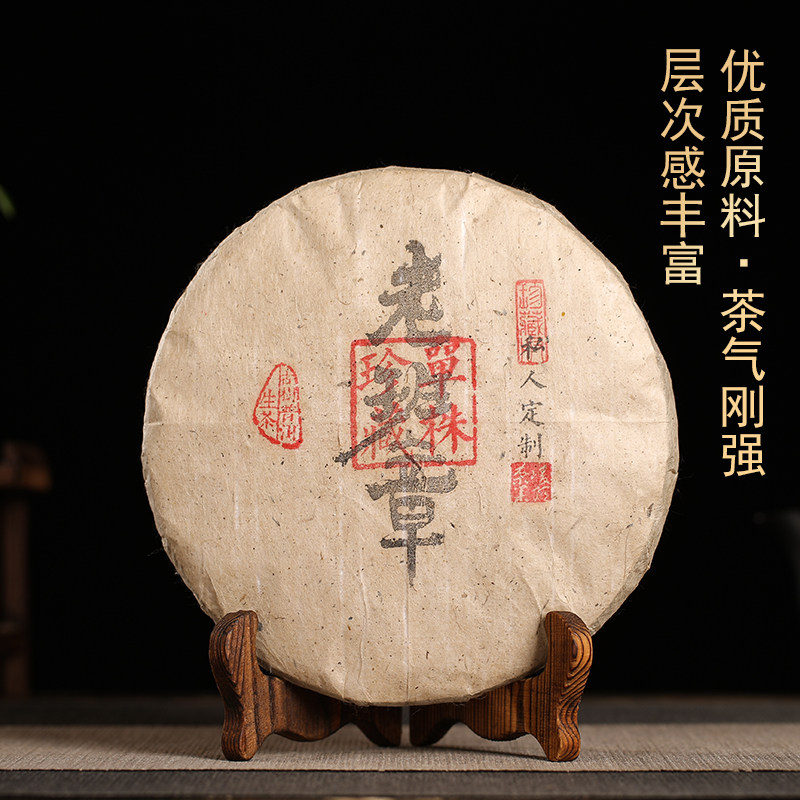 优质原料·茶气刚强
层次感丰富
老班章
單株
珍藏
珍藏
私人定制
生茶